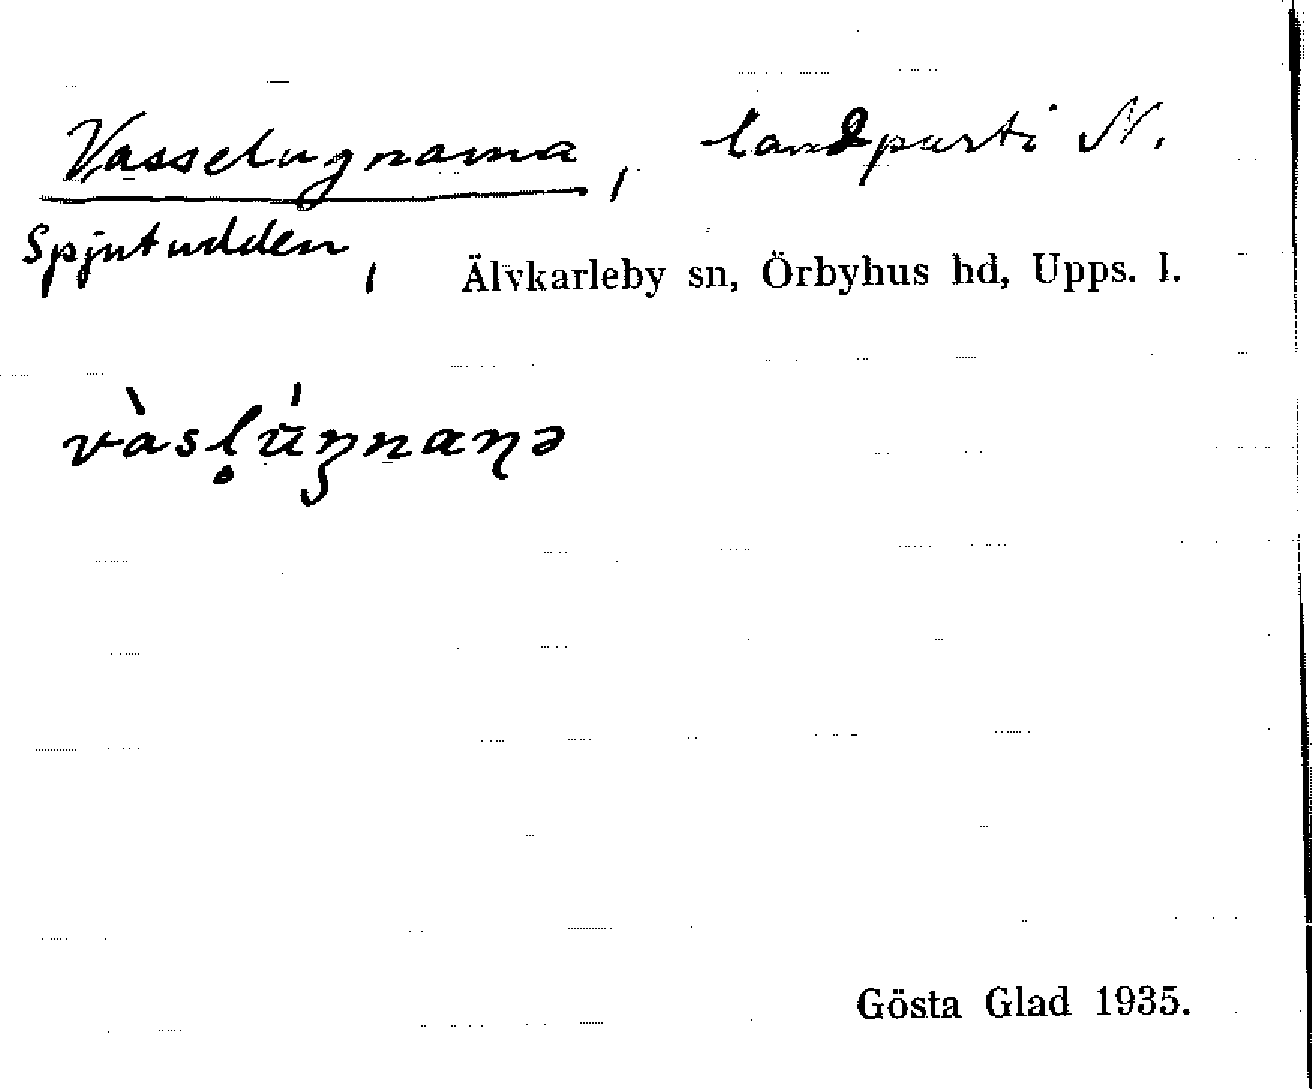 Vasselugnarna, landparti N.
Spjutudden, Älvkarleby sn, Örbyhus hd, Upps. l.
Gösta Glad 1935.